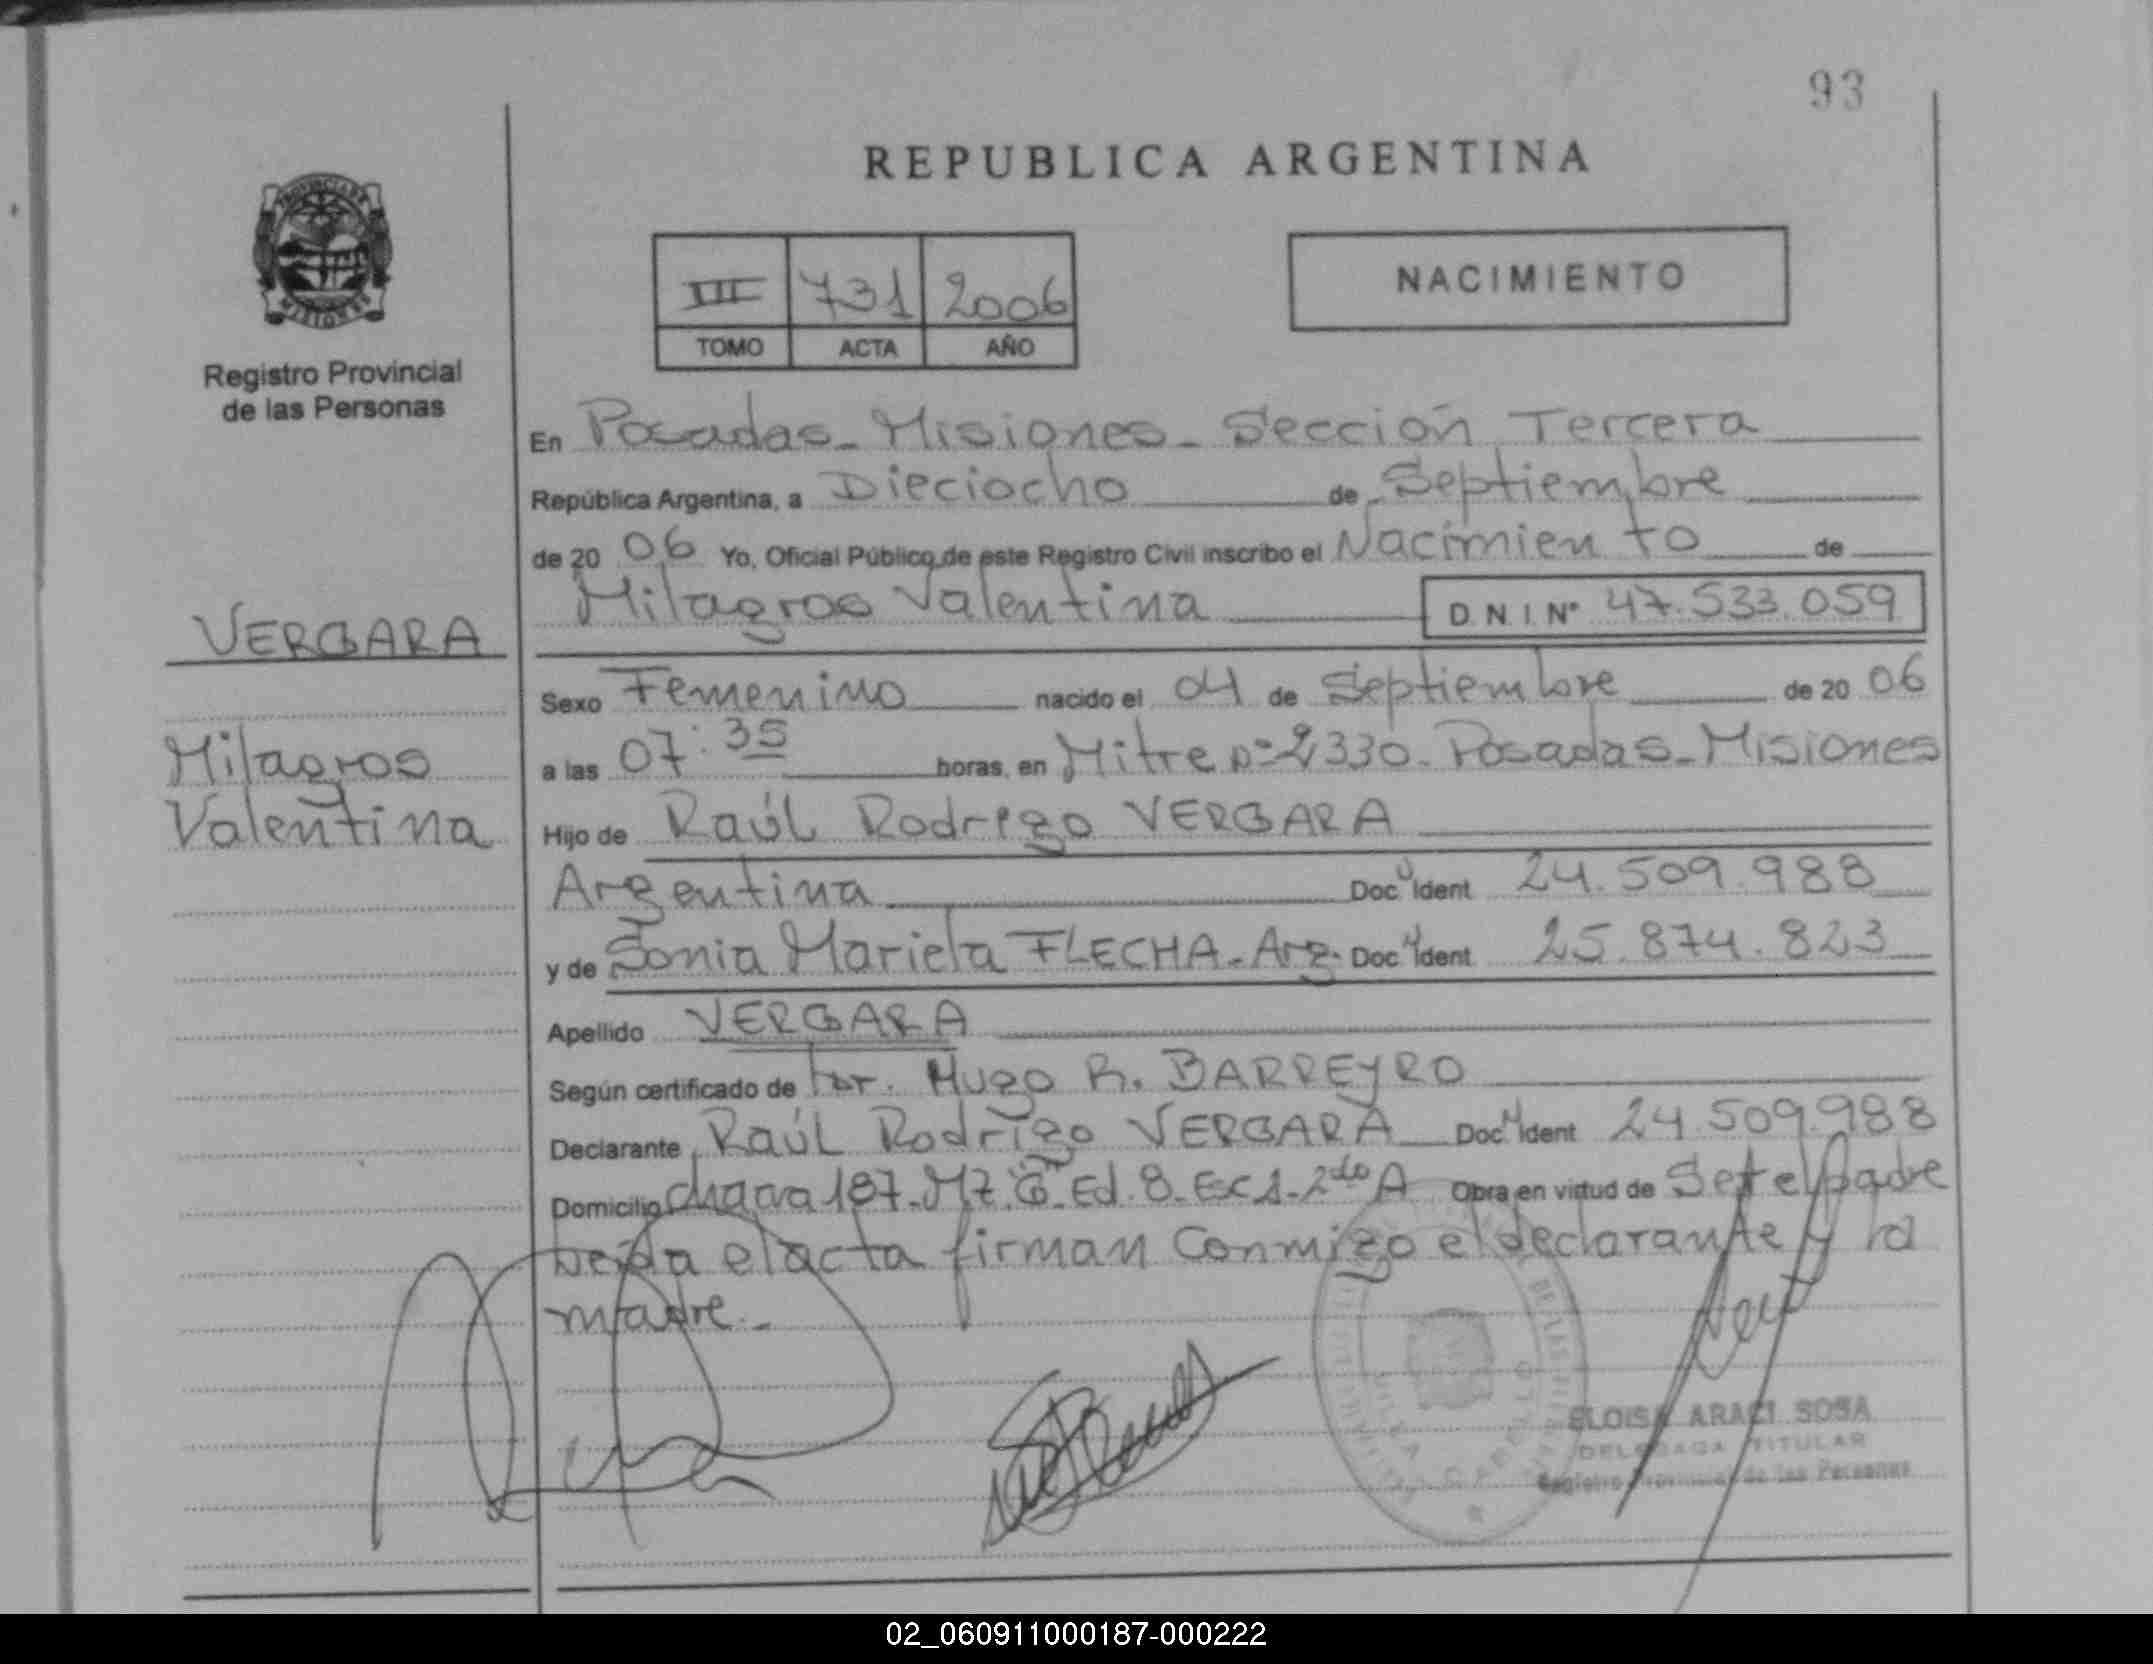 93
REPUBLICA ARGENTINA
PROVINCIA DE
MISIONES
Registro Provincial
de las Personas
III 731 2006
TOMO ACTA AÑO
NACIMIENTO
En Posadas - Misiones - Sección Tercera
República Argentina, a Dieciocho de Septiembre
de 20 06 Yo, Oficial Público de este Registro Civil inscribo el Nacimiento de
Milagros Valentina D.N.I. N° 47.533.059
VERGARA
Milagros
Valentina
Sexo Femenino nacido el 04 de Septiembre de 20 06
a las 07:35 horas, en Mitre nº 2330. Posadas - Misiones
Hijo de Raúl Rodrigo VERGARA
Argentina Doc Ident 24.509.988
y de Sonia Mariela FLECHA - Arg. Doc Ident 25.874.823
Apellido VERGARA
Según certificado de Hugo R. BARREYRO
Declarante Raúl Rodrigo VERGARA Doc Ident 24.509.988
Domicilio Chacra 187. Mz. Ed. 8. Esc 1 - 2do A Obra en virtud de Ser el padre
Leída el acta firman conmigo el declarante y la
madre.-
ELOISA ARACI SOSA
DELEGADA TITULAR
Registro Provincial de las Personas
02_060911000187-000222